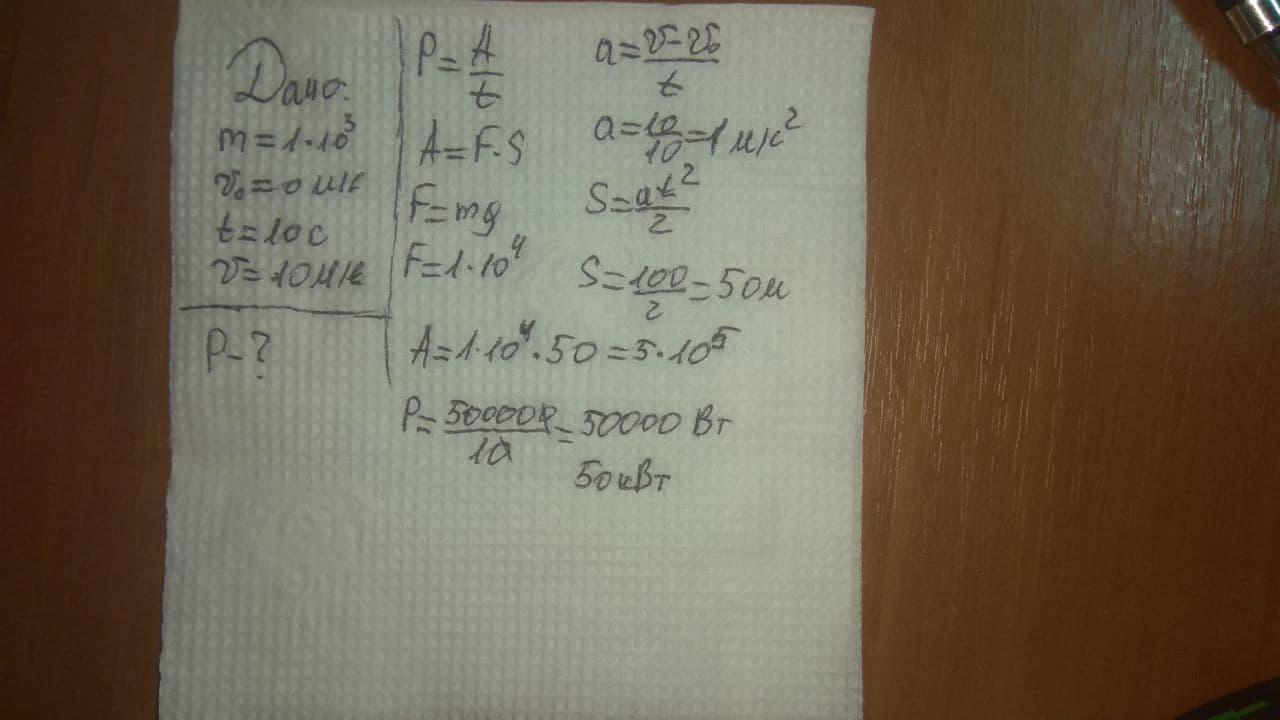 Дано:
m=1·10³
v₀=0 м/с
t=10с
v=10м/с
P-?
P=A/t
A=F·S
F=mg
F=1·10⁴
a=(v-v₀)/t
a=10/10=1 м/с²
S=at²/2
S=100/2=50м
A=1·10⁴·50=5·10⁵
P=500000/10=50000 Вт
50кВт